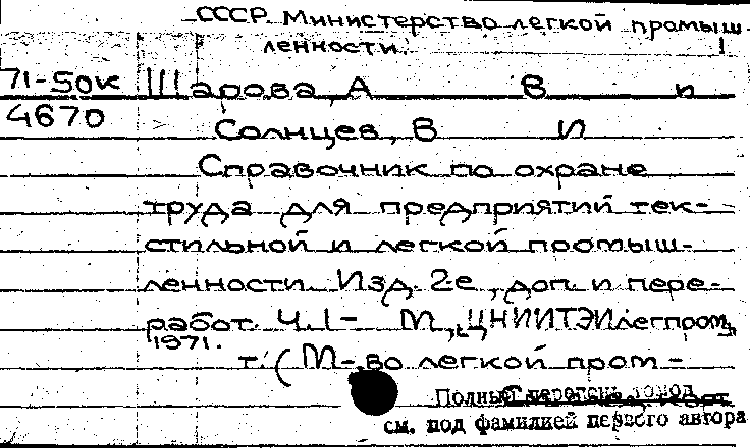 СССР. Министерство легкой промыш-
ленности. 1
71-50к Шарова, А В и
4670 Солнцев, В И
Справочник по охране
труда для предприятий тек-
стильной и легкой промыш-
ленности. Изд. 2-е, доп. и пере-
работ. Ч. I- М., ЦНИИТЭИлегпром,
1971.
т. (М-во легкой пром-
Полный
см. под фамилией первого автора